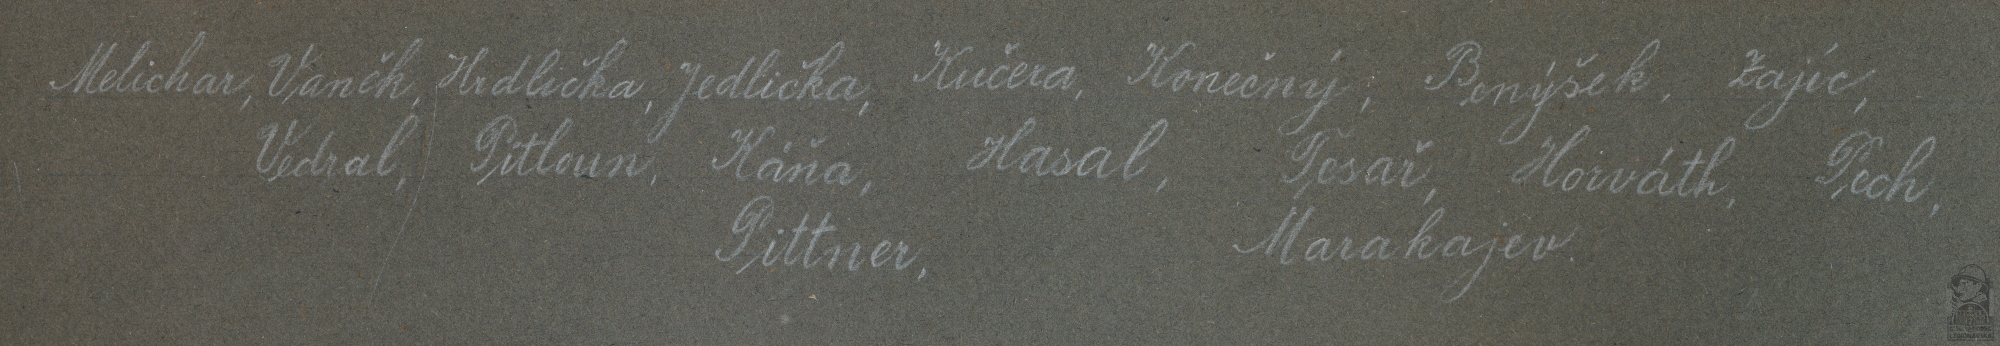 Melichar, Vaněk, Hrdlička, Jedlička, Kučera, Konečný, Benýšek, Zajíc,
Vedral, Pitloun, Káňa, Hasal, Tesař, Horváth, Pech,
Pittner, Marakajev.